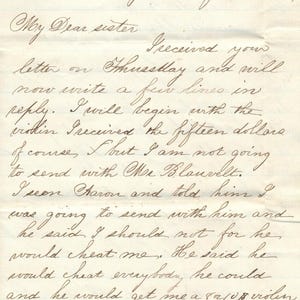 My Dear sister
I received your
letter on Thussday and will
now write a few lines in
reply. I will begin with the
violin I received the fifteen dollars
of course, but I am not going
to send with Mr Blauvelt.
I seen Aaron and told him I
was going to send with him and
he said I should not for he
would cheat me. He said he
would cheat everybody he could
and he would get me a 8 or 10 $ violin